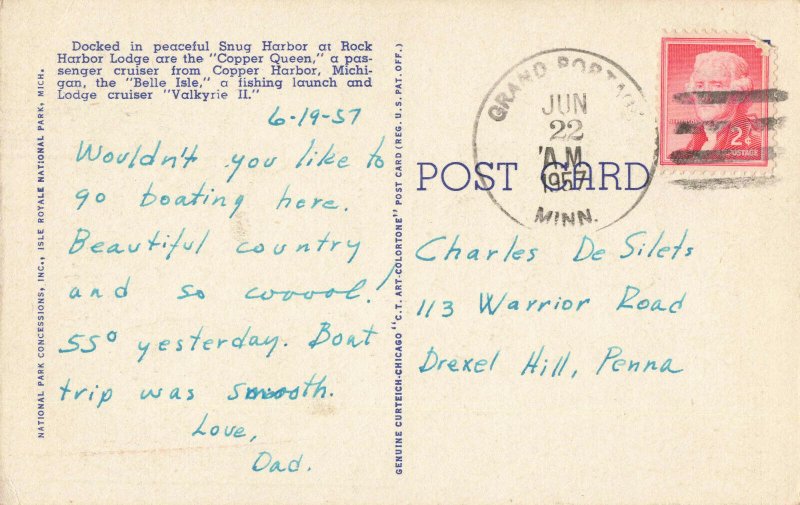 Docked in peaceful Snug Harbor at Rock
Harbor Lodge are the "Copper Queen," a pas-
senger cruiser from Copper Harbor, Michi-
gan, the "Belle Isle," a fishing launch and
Lodge cruiser "Valkyrie II."
6-19-57
Wouldn't you like to
go boating here.
Beautiful country
and so cooool!
55° yesterday. Boat
trip was smooth.
Love,
Dad.
NATIONAL PARK CONCESSIONS, INC., ISLE ROYALE NATIONAL PARK, MICH.
GENUINE CURTEICH-CHICAGO "C.T. ART-COLORTONE" POST CARD (REG. U.S. PAT. OFF.)
POST CARD
GRAND PORTAGE
JUN
22
A.M.
1957
MINN.
2¢
POSTAGE
Charles De Silets
113 Warrior Road
Drexel Hill, Penna